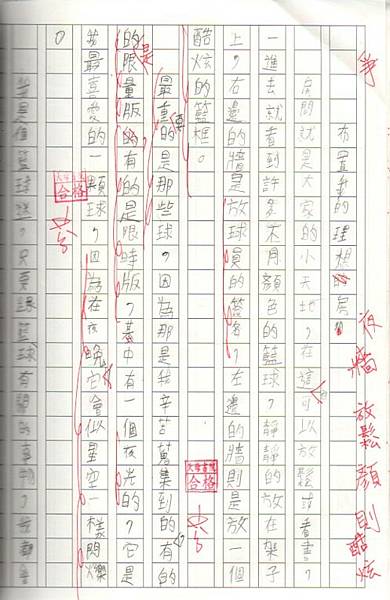 夜牆 放鬆 顏 則 酷炫
布置我的理想的房
房間就是大家的小天地，在這可以放鬆或看書，
一進去就看到許多不同顏色的籃球，靜靜的放在架子
上，右邊的牆是放球員的簽名，左邊的牆則是放一個
酷炫的籃框。
大容書院
合格
最重的是那些球，因為那是我辛苦蒐集到的，有的
的限量版的，有的是限時版，其中有一個夜光的，它是
我最喜愛的一顆球，因為在夜晚它會似星空一樣閃爍
。
合格
是個籃球迷，只要跟籃球有關的事物，我都會